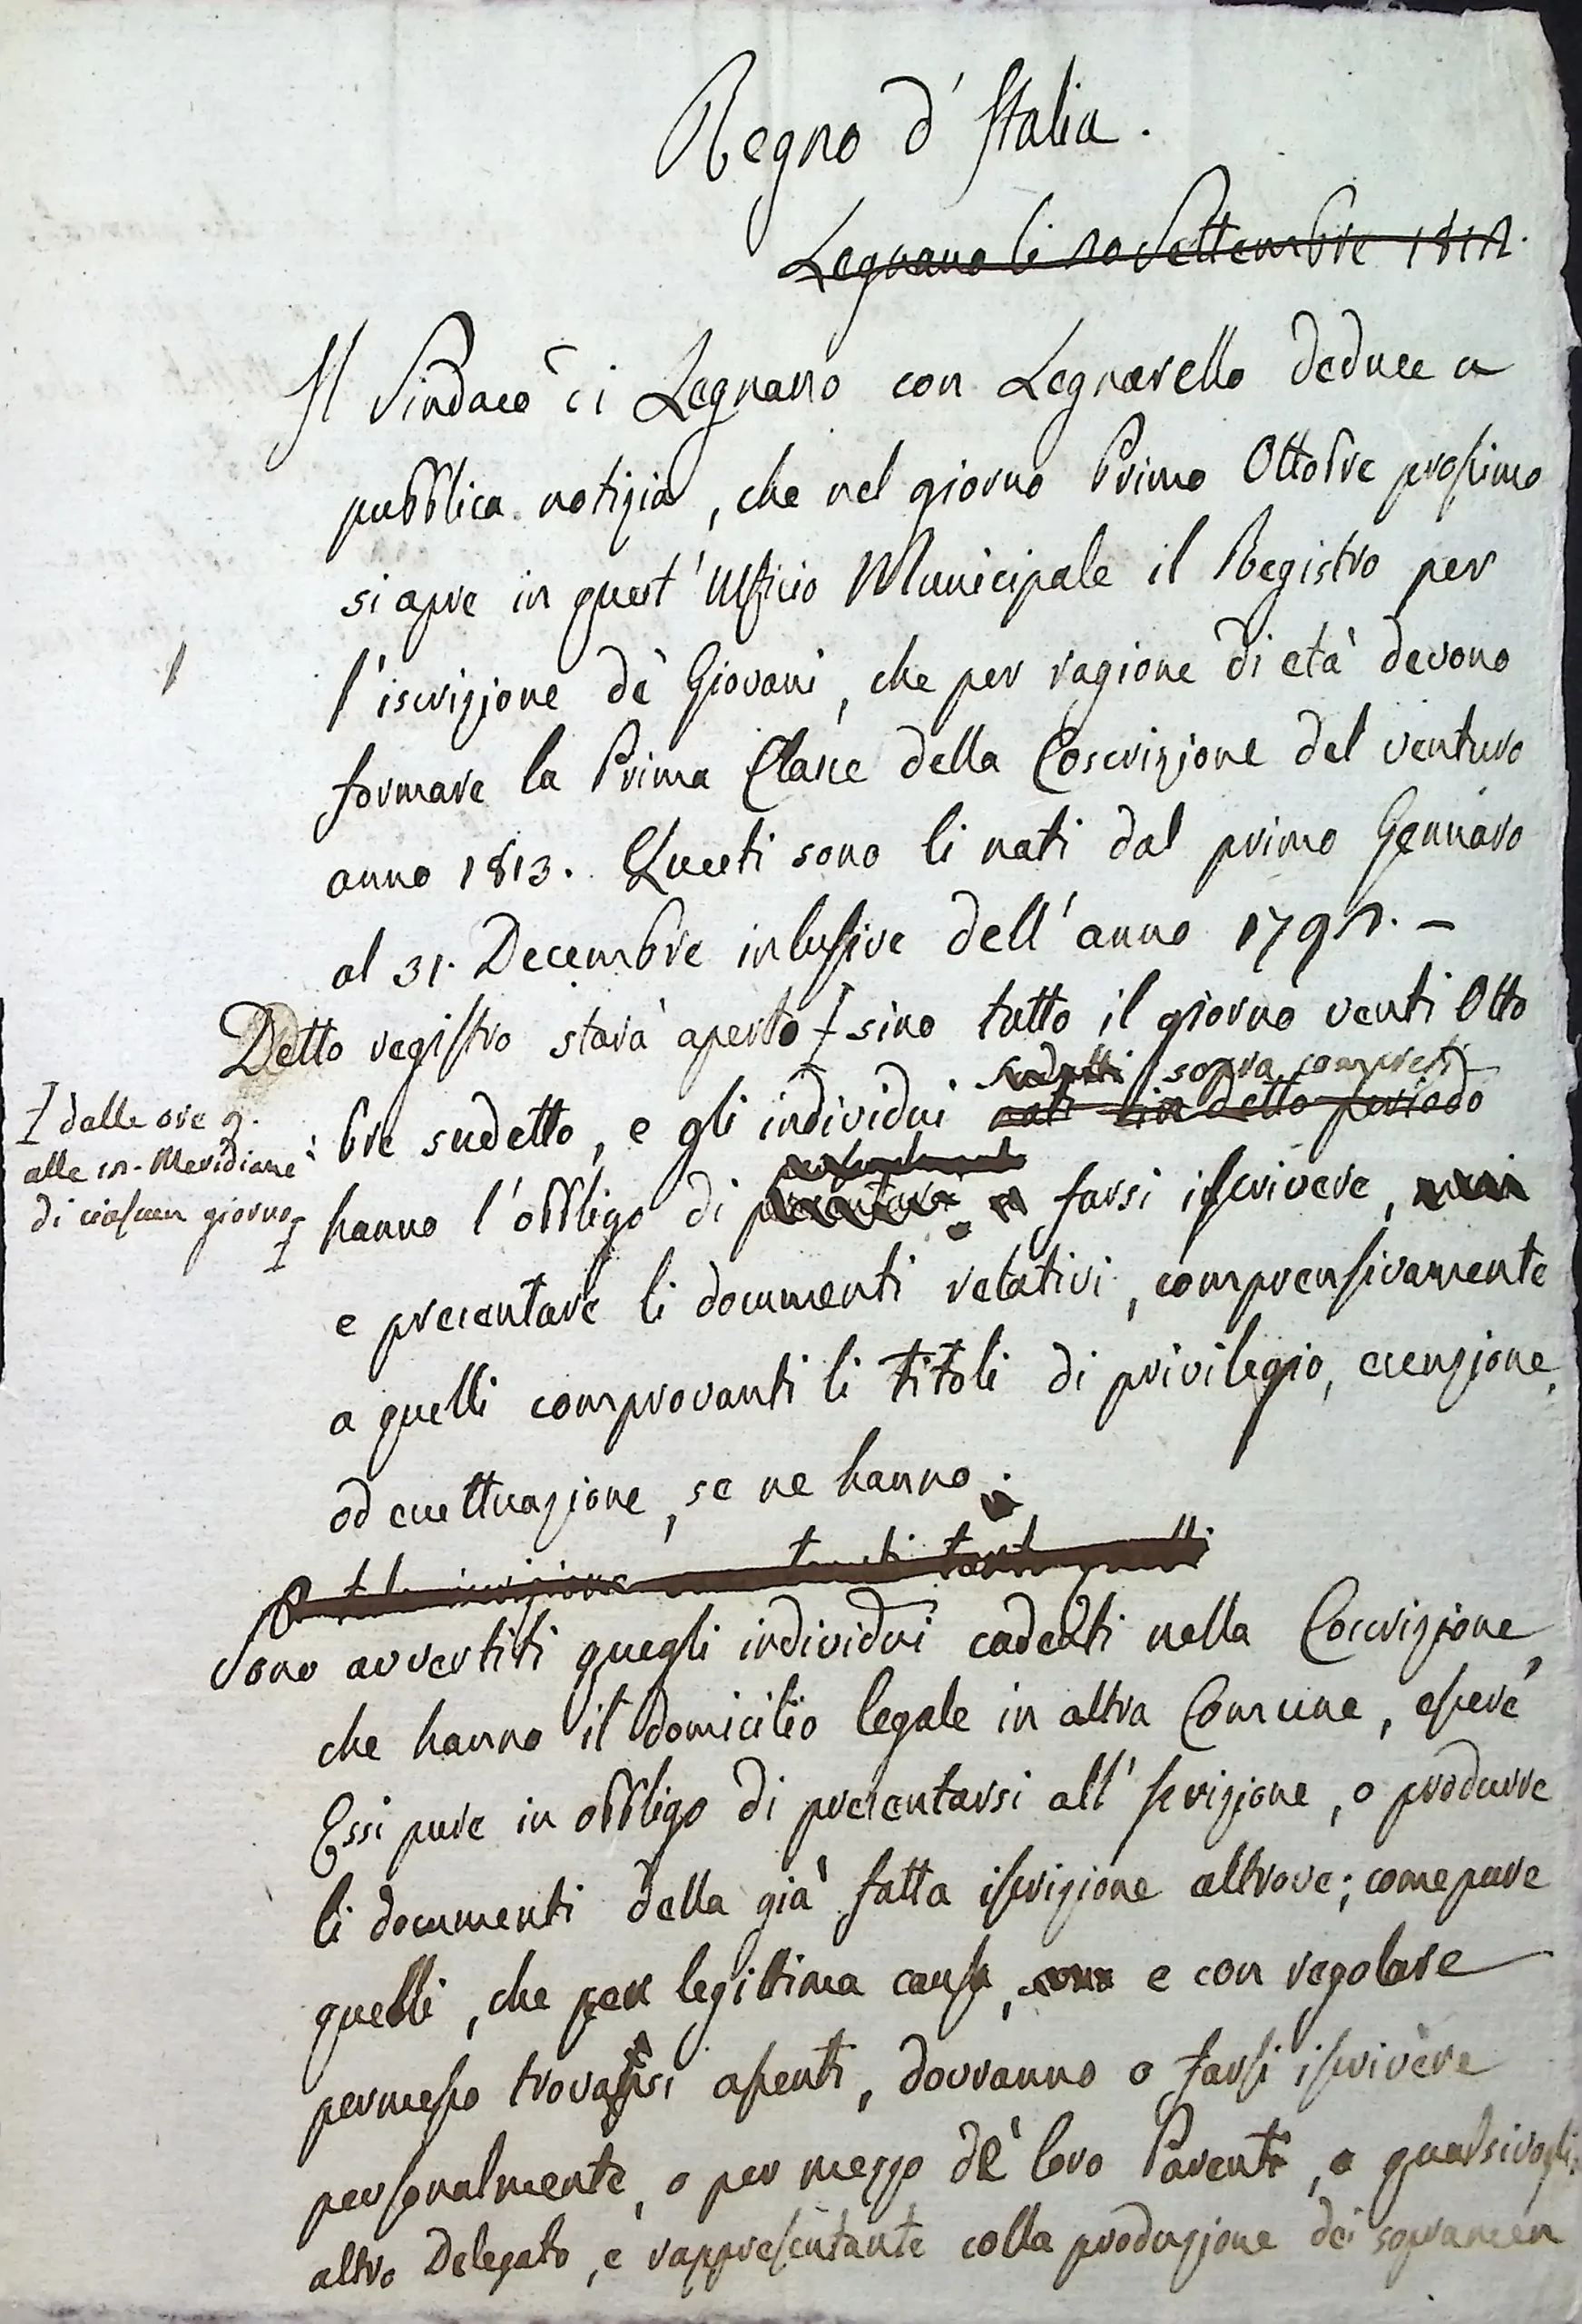 Regno d'Italia.
Legnano li 20 Settembre 1812.
Il Sindaco di Legnano con Legnarello deduce a
pubblica notizia, che nel giorno Primo Ottobre prossimo
si apre in quest'Ufficio Municipale il Registro per
l'iscrizione de' Giovani, che per ragione di età devono
formare la Prima Classe della Coscrizione del venturo
anno 1813. Questi sono li nati dal primo Gennaro
al 31. Decembre inlusive dell'anno 1792. –
Detto registro starà aperto ‡ sino tutto il giorno venti Otto
sudetti sopra compresi
‡ dalle ore 9.
alle 12. Meridiane
di ciascun giorno ‡
bre sudetto, e gli individui nati in detto periodo
hanno l'obbligo di farsi iscrivere,
e presentare li documenti relativi, comprensivamente
a quelli comprovanti li titoli di privilegio, esenzione,
od eccettuazione, se ne hanno.
iscrizione tanto quelli
Sono avvertiti quegli individui cadenti nella Coscrizione,
che hanno il domicilio legale in altra Comune, essere
Essi pure in obbligo di presentarsi all'Iscrizione, o produrre
li documenti della già fatta iscrizione altrove; come pure
quelli, che per legittima causa, e con regolare
permesso trovansi assenti, dovranno o farsi iscrivere
personalmente, o per mezzo de' loro Parenti, o qualsivogli:
altro Delegato, e rappresentante colla produzione dei sopramen